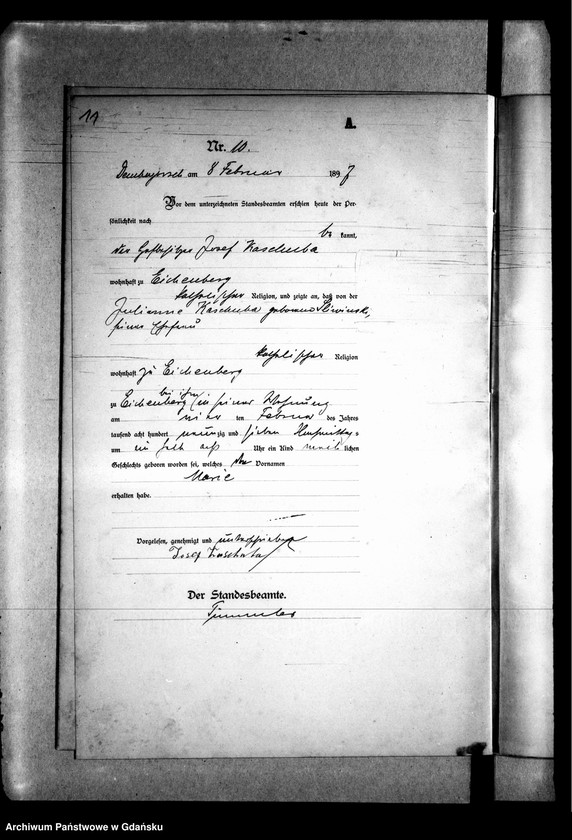 11
A.
Nr. 10.
am 8 Februar 1897
Vor dem unterzeichneten Standesbeamten erschien heute der Per-
sönlichkeit nach
be kannt,
der Josef Kaschuba
wohnhaft zu Eichenberg
katholischer Religion, und zeigte an, daß von der
Julianne Kaschuba geborene Sliwinski,
seiner Ehefrau
katholischer Religion
wohnhaft zu Eichenberg
zu Eichenberg bei ihm in seiner Wohnung
am ten Februar des Jahres
tausend acht hundert neunzig und sieben
um halb acht Uhr ein Kind weiblichen
Geschlechts geboren worden sei, welches den Vornamen
Marie
erhalten habe.
Vorgelesen, genehmigt und unterschrieben
Josef Kaschuba
Der Standesbeamte.
Archiwum Państwowe w Gdańsku